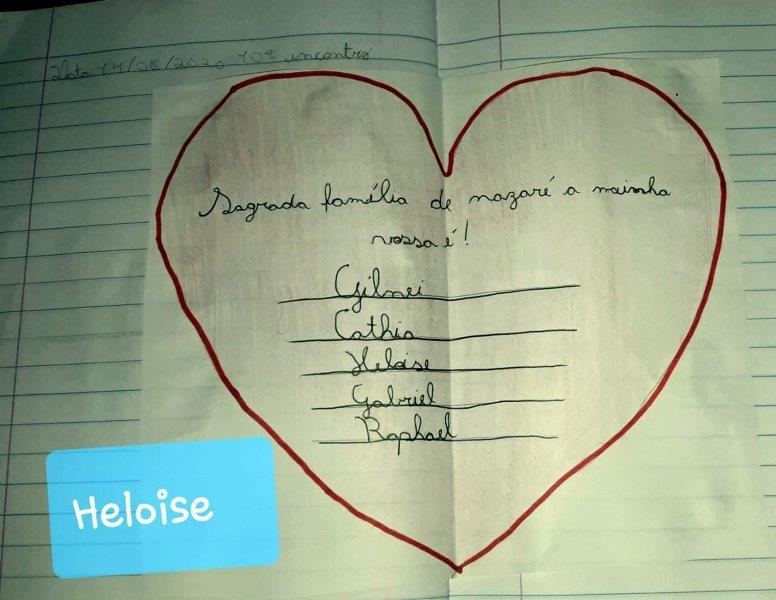 Data 17/08/2020 10º encontro
Sagrada família de nazaré a mainha
vossa é!
Gilnei
Cathia
Heloise
Gabriel
Raphael
Heloise